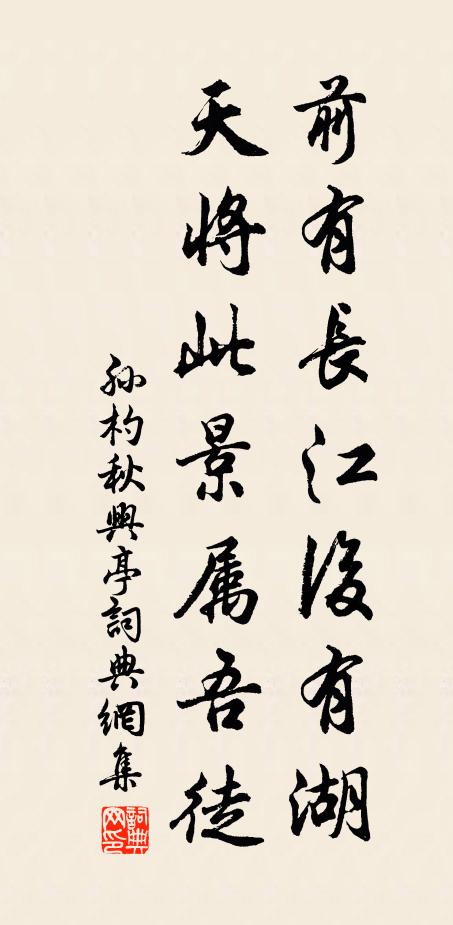 前有長江後有湖
天將此景属吾徒
孙杓秋興亭詞典網集
詞典网印